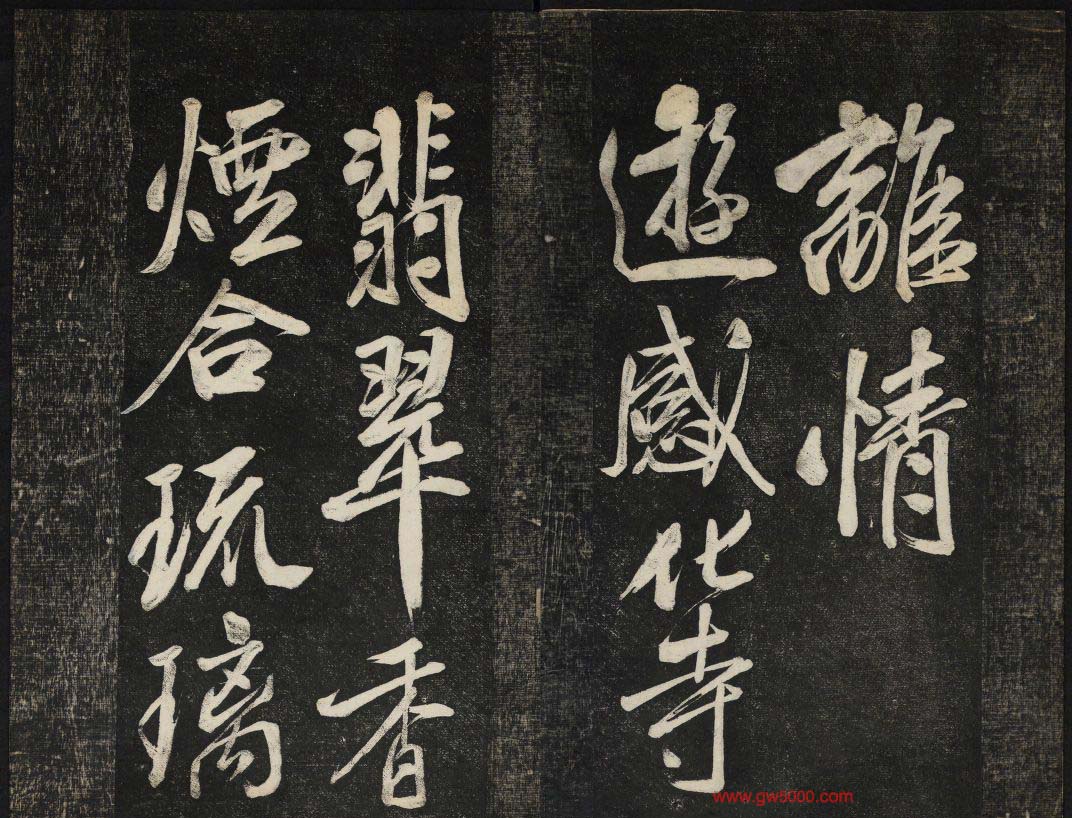 離情
遊感化寺
翡翠香
煙合琉璃
www.gw5000.com